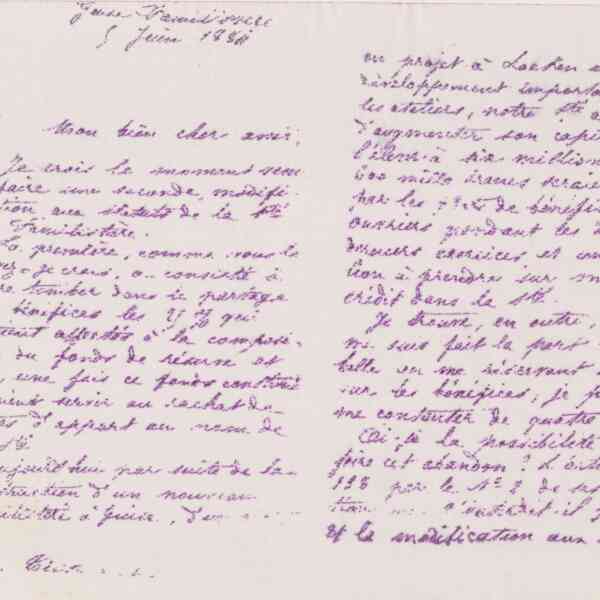 Guise Familistère
5 Juin 1884
Mon bien cher ami,
Je crois le moment venu
faire une seconde modifi-
tion aux statuts de la Sté
Familistère.
La première, comme vous le
je crois, a consisté à
re tomber dans le partage
bénéfices les 25 % qui
ient affectés à la composi-
du fonds de réserve et
, une fois ce fonds constitué
servir au rachat de
d'apport au nom de
Sté
aujourd'hui par suite de la
truction d'un nouveau
à Guise, d'
un projet à Laeken
développement importa
les ateliers, notre Sté a
d'augmenter son capi
l'élever à six million
600 mille francs seraie
par les de bénéfi
ouvriers pendant les
derniers exercices et
à prendre sur m
crédit dans la Sté.
Je trouve, en outre,
me suis fait la part
belle en me réservant
sur les bénéfices, je p
me contenter de quatre
Ai-je la possibilité
faire cet abandon ? L'arti
128 par le No 2 de
l'interdit-il
et la modification aux